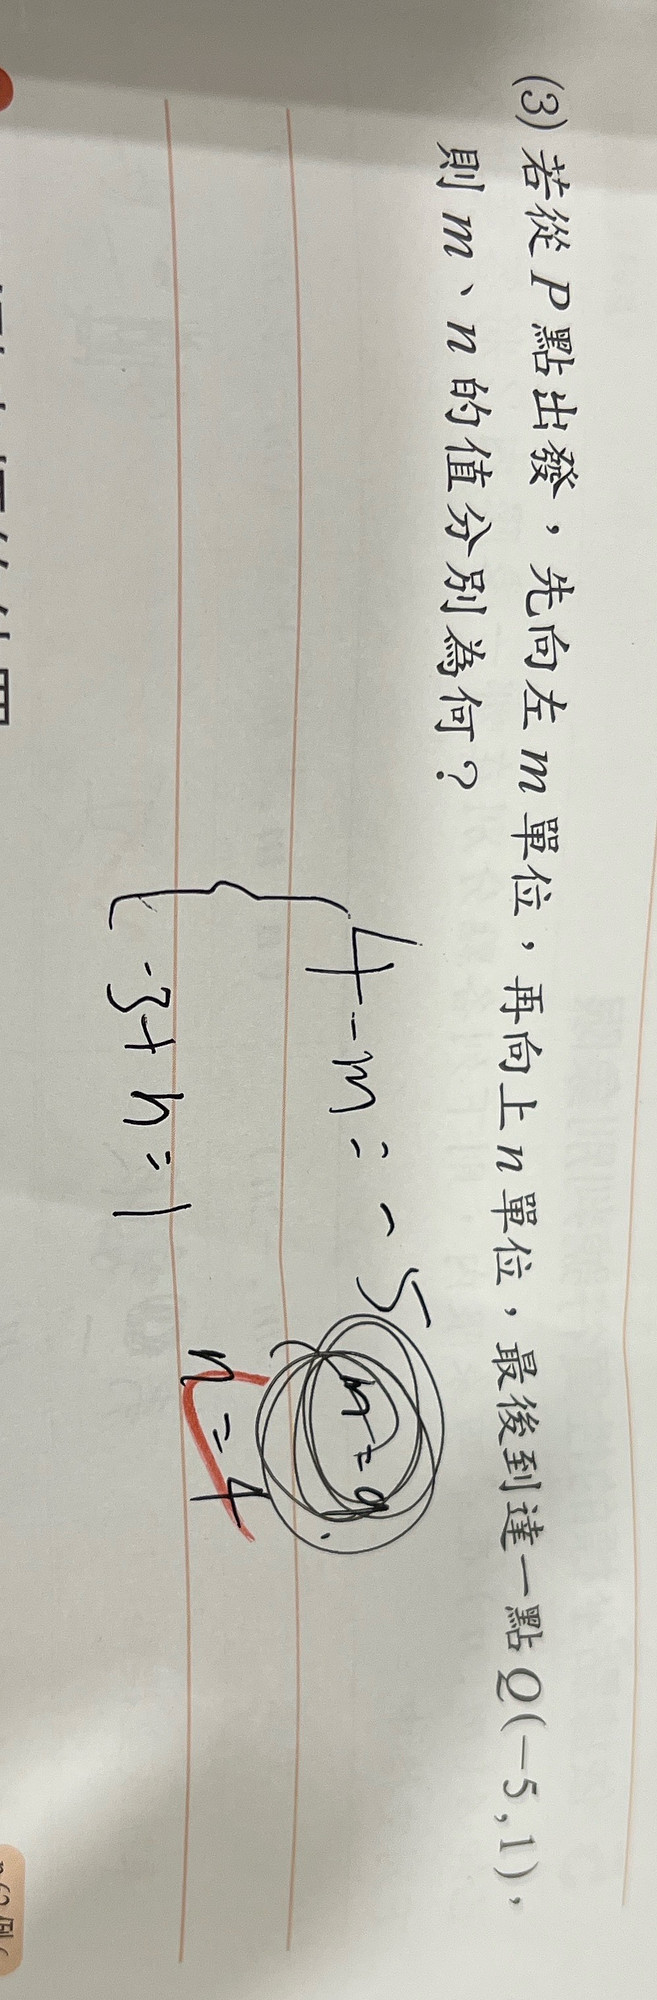 (3) 若從 P 點出發，先向左 m 單位，再向上 n 單位，最後到達一點 Q(−5 , 1)，
則 m、n 的值分別為何？
4-m=-5
m=9
-3+n=1
n=4